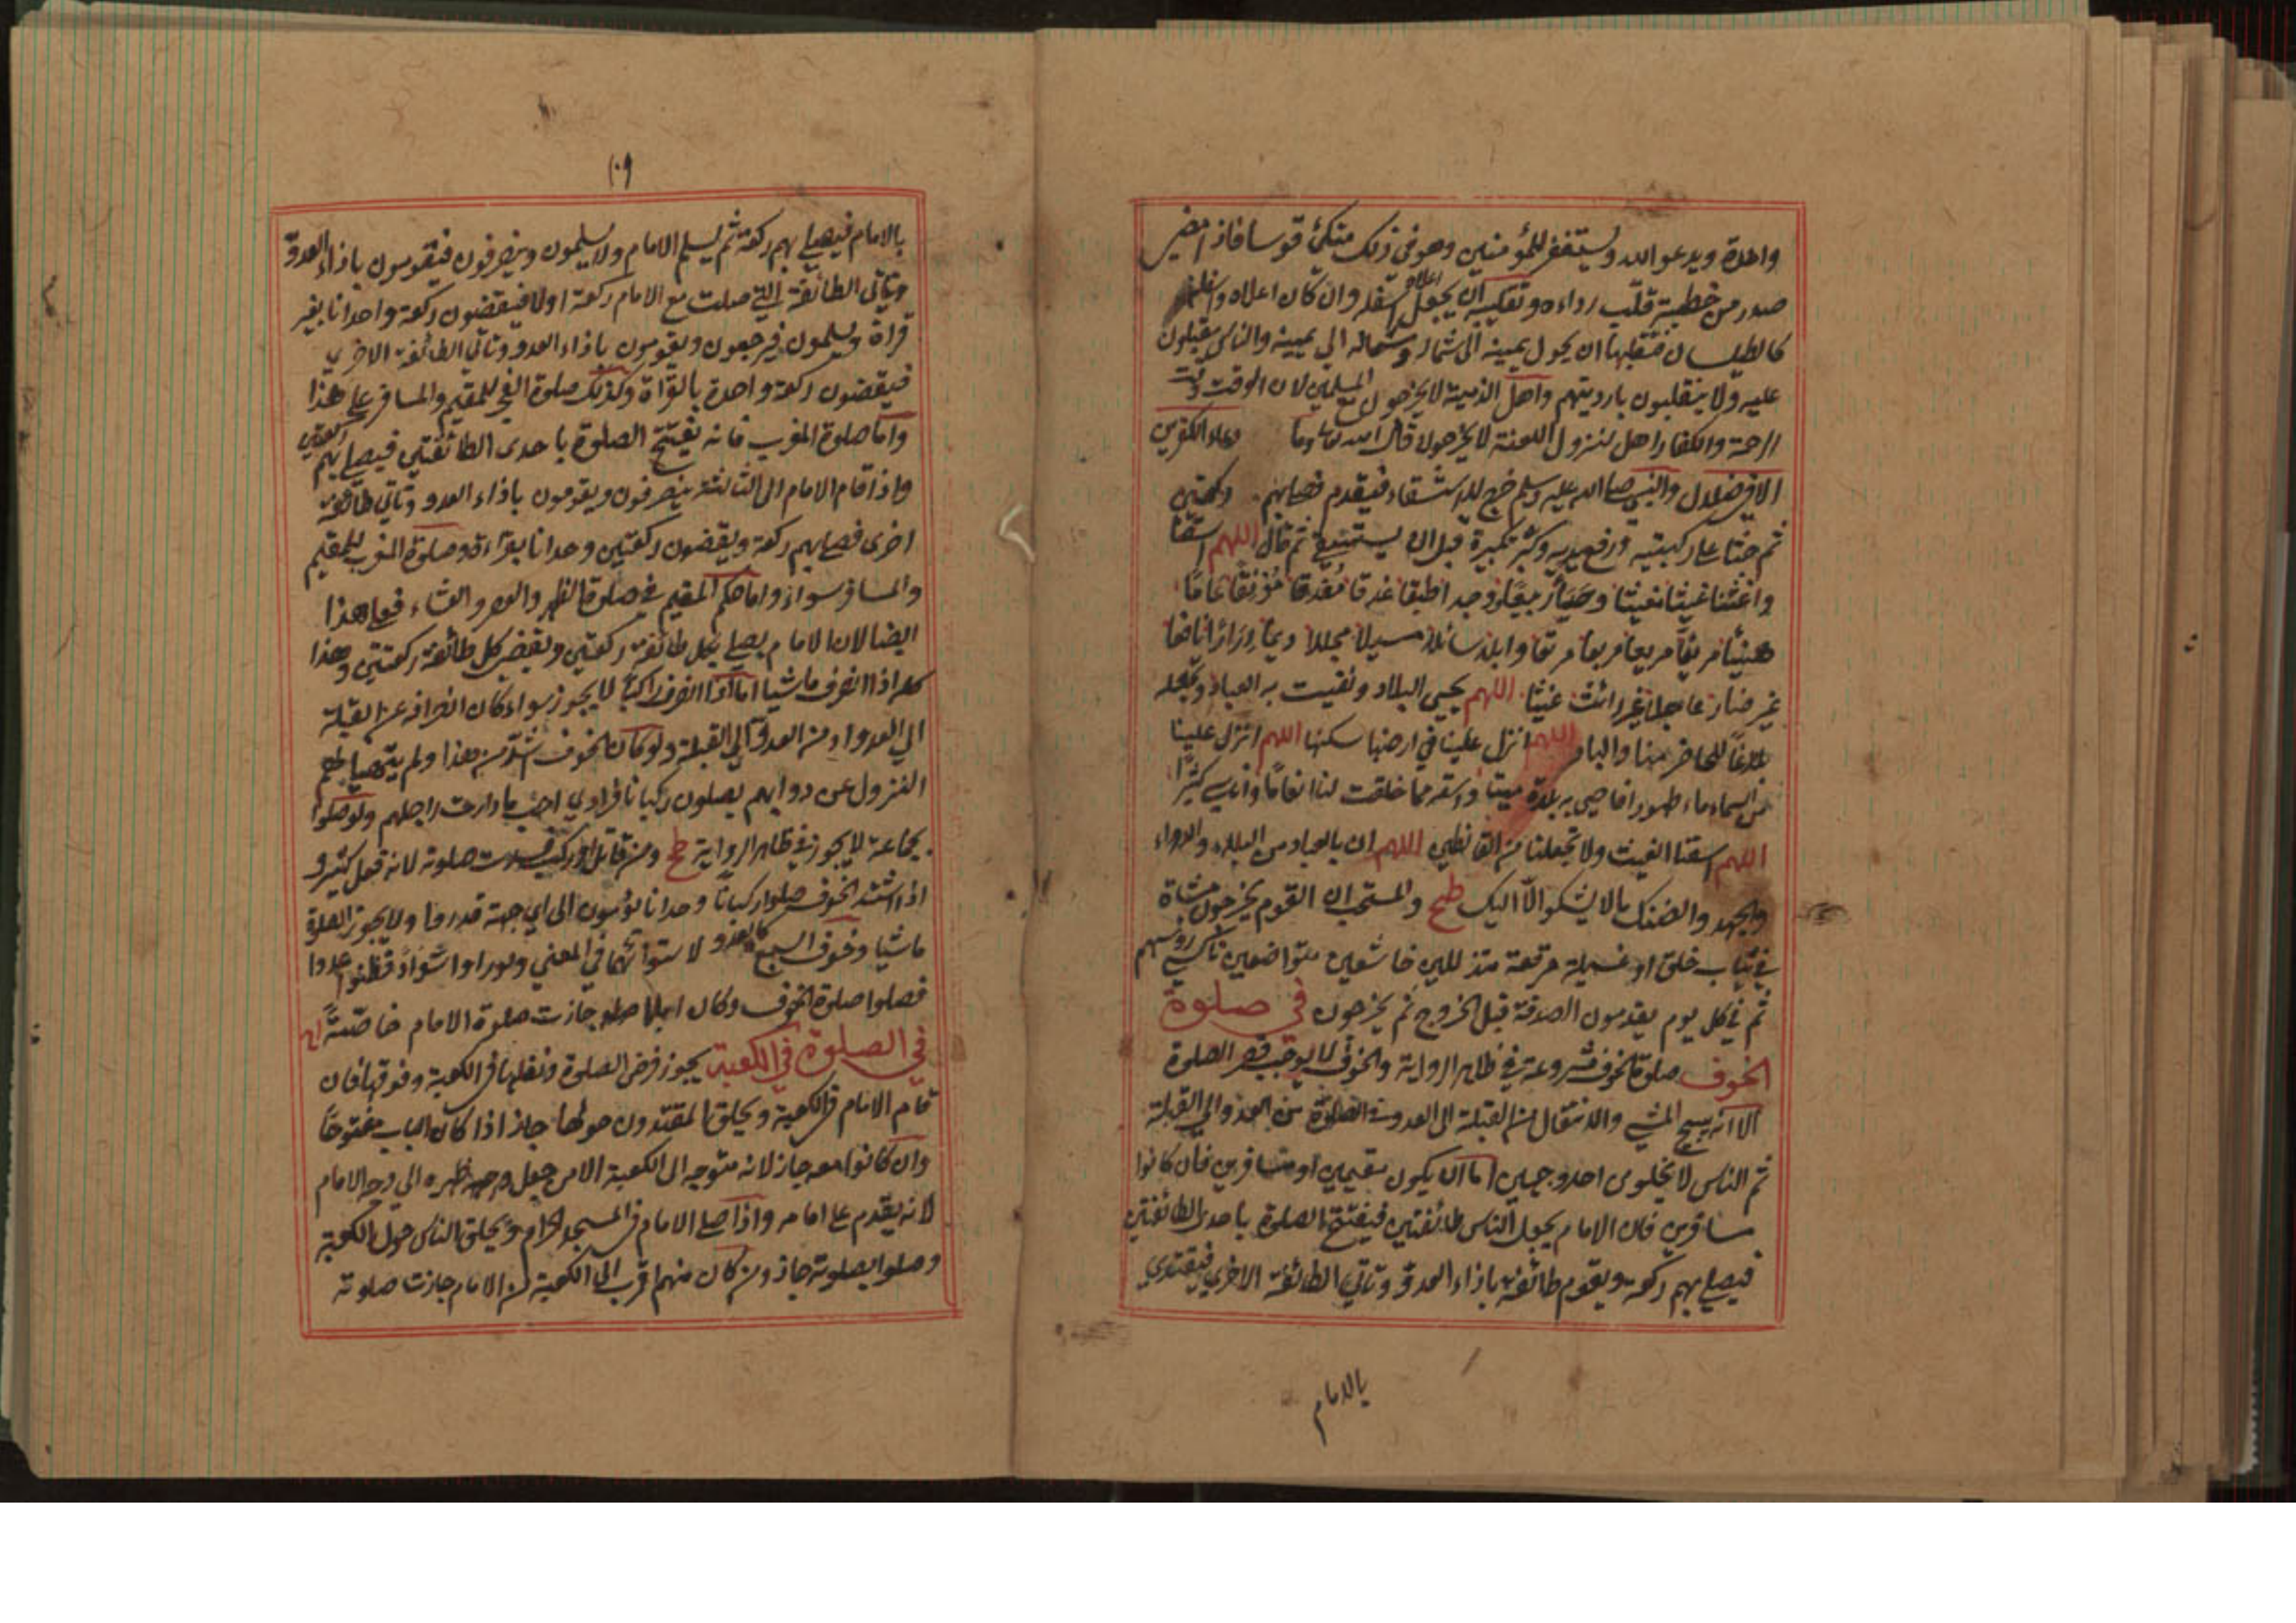 واحدة ويدعو الله ويستغفر للمؤمنين وهو في ذلك متكئ قوسا فاذا مضى
صدر من خطبته قلّب رداءه وتقليبه ان يجعل اعلاه اسفله وان كان اعلاه واسفله
كالطيلسان فتقلبها ان يحول يمينه الى شماله وشماله الى يمينه والناس مقبلون
عليه ولا ينقلبون بارديتهم واهل الذمة لا يخرجون مع المسلمين لان الوقت وقت
الرحمة والكفار اهل لنزول اللعنة لا يخرجون قال الله تعالى وما دعاء الكفرين
الا في ضلال والنبي صلى الله عليه وسلم خرج للاستسقاء فيقدم فصلى بهم ركعتين
ثم جثا على ركبتيه ورفع يديه وكبّر تكبيرة قبل ان يستسقي ثم قال اللهم اسقنا
واغثنا غيثا مغيثا وحيا ربيعا وجدا طبقا غدقا مغدقا مؤنقا عاما
هنيئا مريئا مريعا مربعا مرتعا وابلا سائلا مسبلا مجللا ديما درارا نافعا
غير ضار عاجلا غير رائث غيثا اللهم تحيي البلاد وتغيث به العباد وتجعله
بلاغا للحاضر منا والباد اللهم انزل علينا في ارضنا سكنها اللهم انزل علينا
من السماء ماء طهورا فاحيي به بلدة ميتا واسقه مما خلقت لنا انعاما واناسي كثيرا
اللهم اسقنا الغيث ولا تجعلنا من القانطين اللهم ان بالعباد من البلاء والاواء
والجهد والضنك ما لا يشكو الّا اليك طح والمستحب ان القوم يخرجون مشاة
في ثياب خلق او غسيلة مرقعة متذللين خاشعين متواضعين ناكسي رؤسهم
ثم في كل يوم يقدمون الصدقة قبل الخروج ثم يخرجون في صلوة
الخوف صلوة الخوف مشروعة في ظاهر الرواية والخوف لا يوجب قصر الصلوة
الا انه يبيح المشي والانتقال من القبلة الى العدو في الصلوة من العدو الى القبلة
ثم الناس لا يخلو من احد وجهين اما ان يكون مقيمين او مسافرين فان كانوا
مسافرين فان الامام يجعل الناس طائفتين فيفتتح الصلوة باحدى الطائفتين
فيصلي بهم ركعة ويقوم طائفة باذاء العدو وتاتي الطائفة الاخرى فيقتدي
بالامام
١٠٩
بالامام فيصلي بهم ركعة ثم يسلم الامام ولا يسلمون وينصرفون فيقومون باذاء العدوّ
وتاتي الطائفة التي صلت مع الامام ركعة اولا فيقضون ركعة واحدانا بغير
قراة ويسلمون فيرجعون ويقومون باذاء العدو وتاتي الطائفة الاخرى
فيقضون ركعة واحدة بالقراة وكذلك صلوة الفجر للمقيم والمسافر على هذا
واما صلوة المغرب فانه يفتتح الصلوة باحدى الطائفتين فيصلي بهم ركعتين
واذا قام الامام الى الثالثة ينصرفون ويقومون باذاء العدو وتاتي طائفة
اخرى فصلى بهم ركعة ويقضون ركعتين وحدانا بقراة وصلوة المغرب للمقيم
والمسافر سواء واما حكم المقيم في صلوة الظهر والعصر والعشاء فعلى هذا
ايضا لان الامام يصلي بكل طائفة ركعتين ويقضى كل طائفة ركعتين وهذا
كله اذا انصرف ماشيا اما اذا انصرف راكبا لا يجوز سواء كان انصرافه عن القبلة
الى العدو او من العدوّ الى القبلة ولو كان الخوف اشدّ من هذا ولم يتهيا لهم
النزول عن دوابهم يصلون ركبانا فرادى اينما دارت راحلهم ولو صلوا
بجماعة لا يجوز في ظاهر الرواية طح ومن قاتل او ركب فسدت صلوته لانه فعل كثير و
اذا اشتد الخوف صلوا ركبانا وحدانا يؤمون الى اي جهة قدروا ولا يجوز الصلوة
ماشيا وخوف السبع كالعدو لاستوائهما في المعني ولو راوا سوادا فظنوا عدوا
فصلوا صلوة الخوف وكان ابلا جازت صلوة الامام خاصّة
في الصلوة في الكعبة يجوز فرض الصلوة ونفلها في الكعبة وفوقها فان
قام الامام في الكعبة ويحلق المقتدون حولها جاز اذا كان الباب مفتوحا
وان كانوا معه جاز لانه متوجه الى الكعبة الا من جعل ظهره الى وجه الامام
لانه يقدم على امامه واذا صلى الامام في المسجد الحرام ويحلق الناس حول الكعبة
وصلوا بصلوته جاز ومن كان منهم اقرب الى الكعبة من الامام جازت صلوته